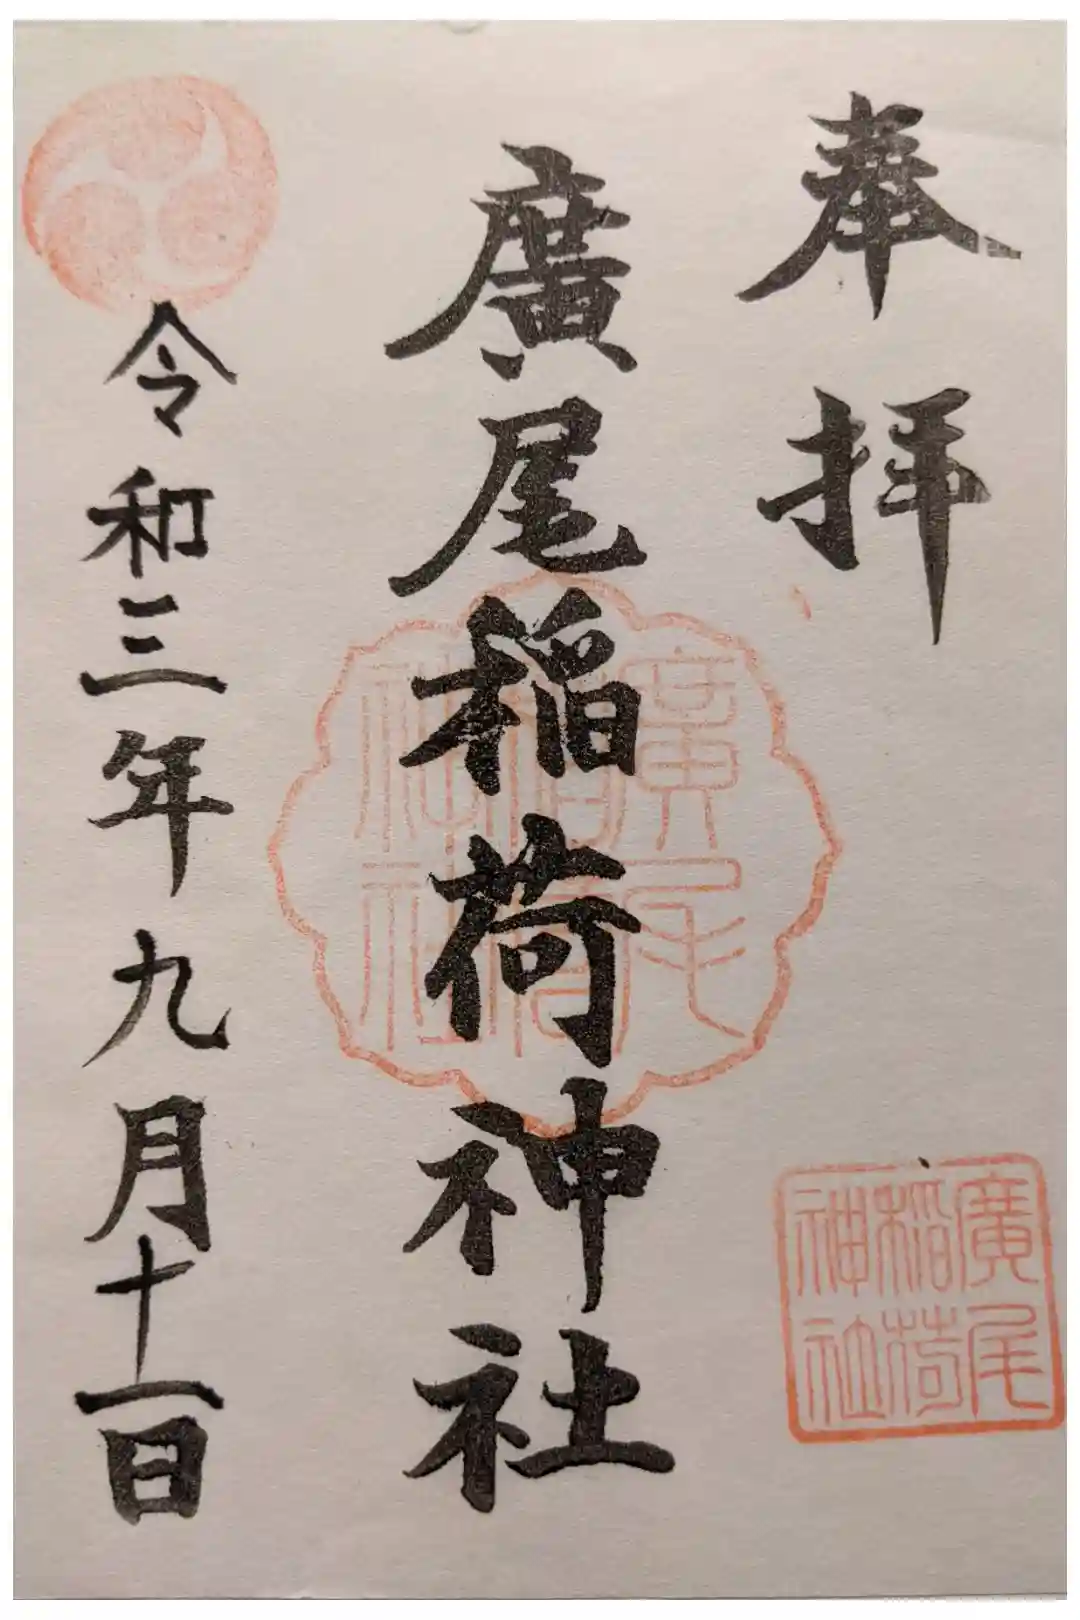 奉拝
廣尾稲荷神社
令和三年九月十一日
廣尾
稲荷
神社
廣尾
稲荷
神社